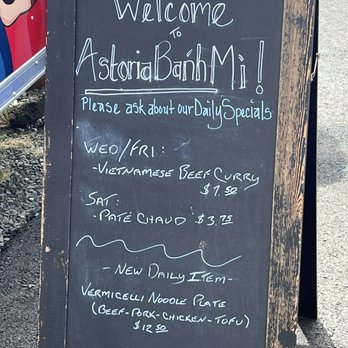 Welcome
TO
Astoria Banh Mi!
Please ask about our Daily Specials
WED/FRI:
-VIETNAMESE BEEF CURRY
$7.50
SAT:
-PATÉ CHAUD $3.75
-NEW DAILY ITEM-
VERMICELLI NOODLE PLATE
(BEEF-PORK-CHICKEN-TOFU)
$12.50